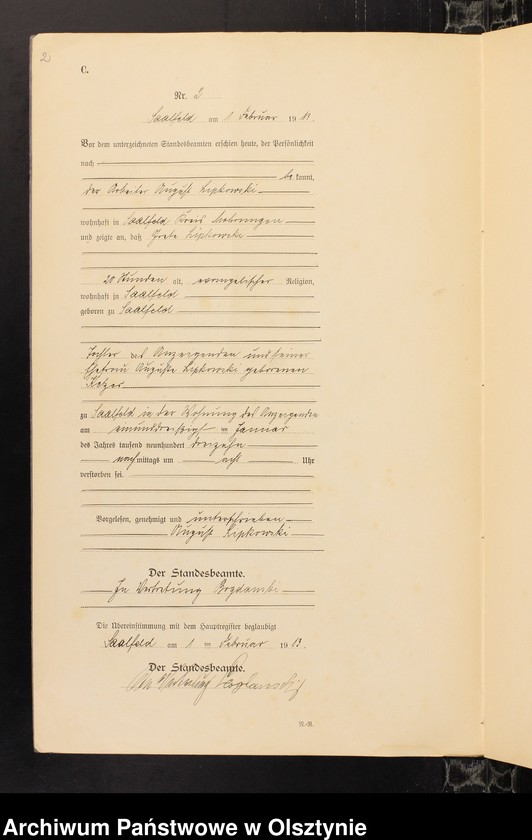 2
C.
Nr. 2
Saalfeld am 1 Februar 1913.
Vor dem unterzeichneten Standesbeamten erschien heute, der Persönlichkeit
nach
bekannt,
der Arbeiter August Lipkowski
wohnhaft in Saalfeld Kreis Mohrungen
und zeigte an, daß Grete Lipkowski
20 Stunden alt, evangelischer Religion,
wohnhaft in Saalfeld
geboren zu Saalfeld
Tochter des Anzeigenden und seiner
Ehefrau Auguste Lipkowski geborenen
zu Saalfeld in der Wohnung des Anzeigenden
am einunddreißigsten Januar
des Jahres tausend neunhundert dreizehn
nachmittags um acht Uhr
verstorben sei.
Vorgelesen, genehmigt und unterschrieben
August Lipkowski
Der Standesbeamte.
In Vertretung
Die Übereinstimmung mit dem Hauptregister beglaubigt
Saalfeld am 1 Februar 1913.
Der Standesbeamte.
In Vertretung
N.-R.
Archiwum Państwowe w Olsztynie